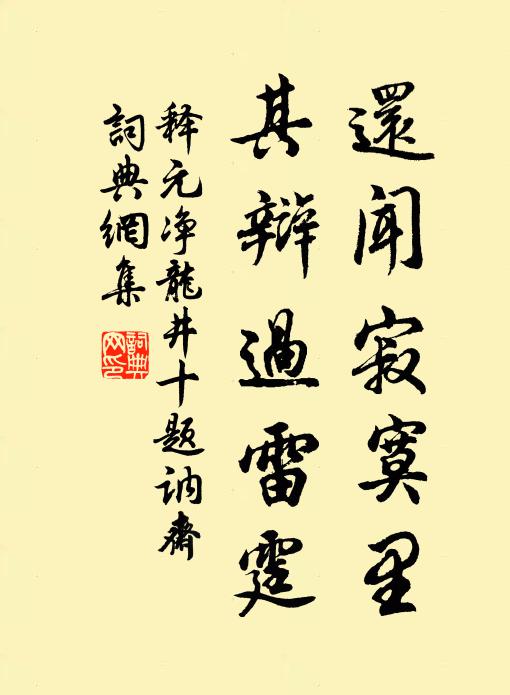 還聞寂寞里
其辯過雷霆
释元净龍井十题讷齋
詞典網集
詞典网印